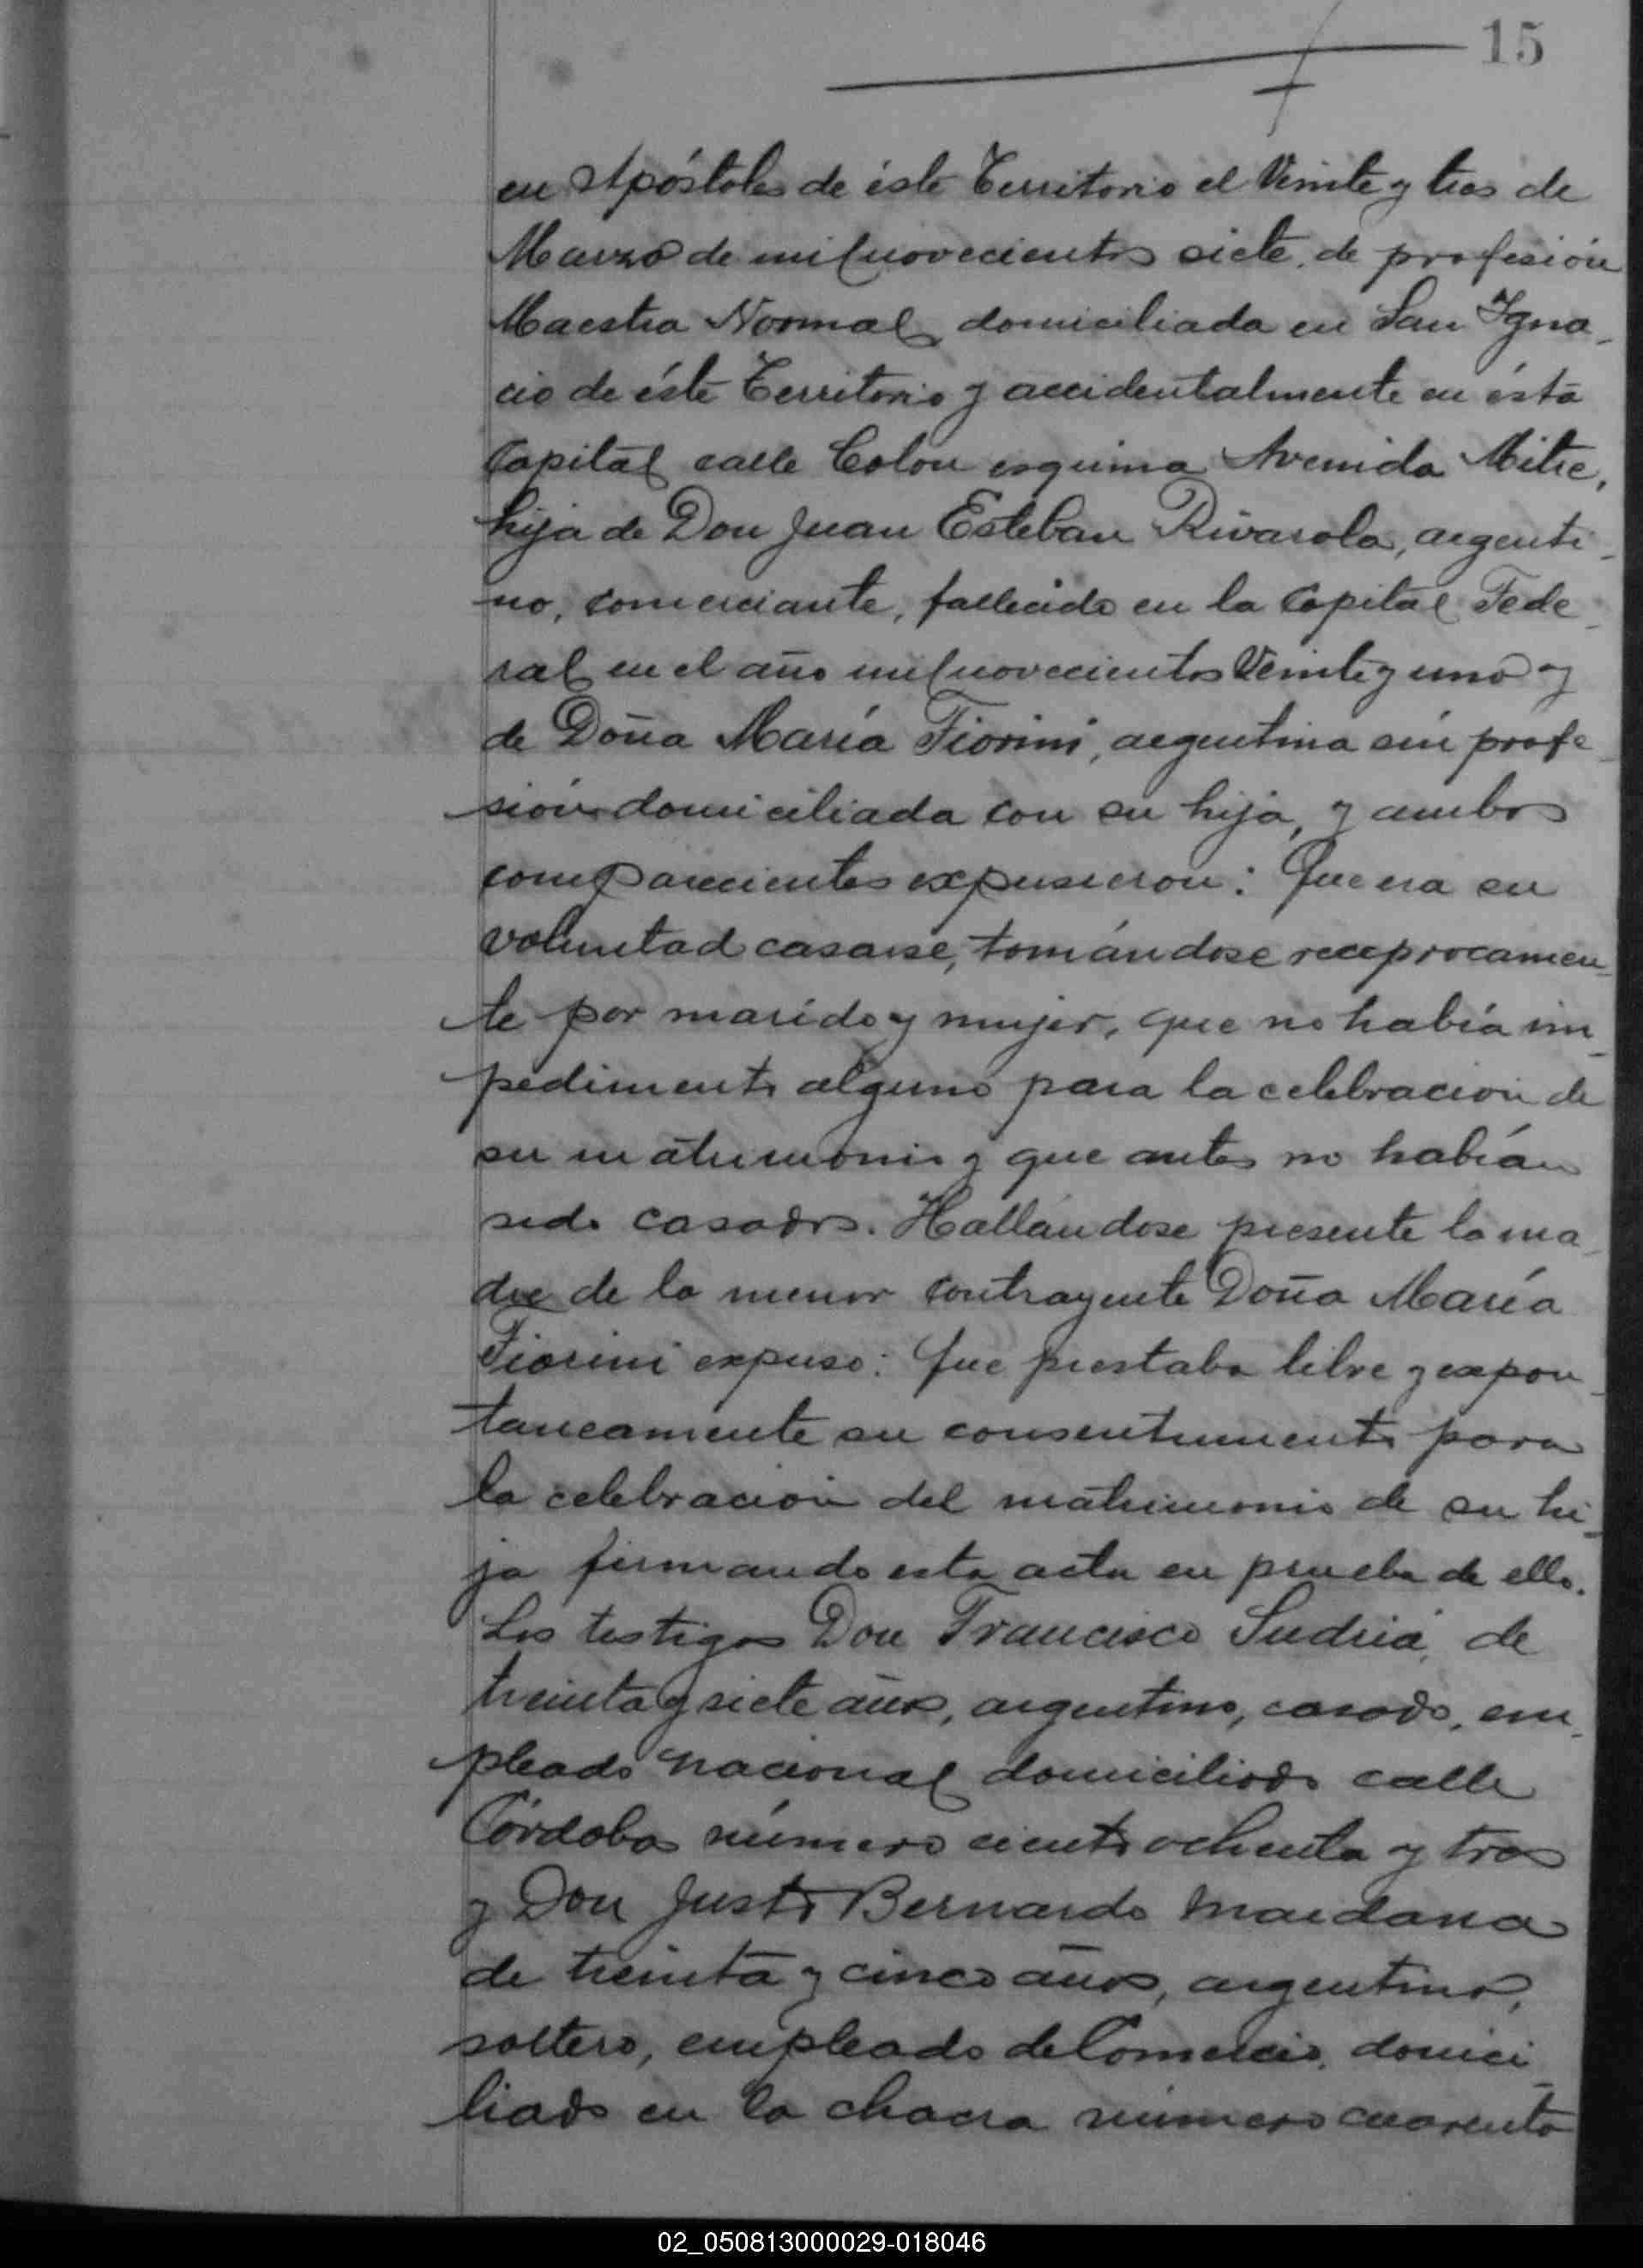 15
en Apóstoles de éste Territorio el Veinte y tres de
Marzo de mil novecientos siete, de profesión
Maestra Normal, domiciliada en San Igna-
cio de éste Territorio y accidentalmente en ésta
Capital calle Colon esquina Avenida Mitre,
hija de Don Juan Esteban Rivarola, argenti-
no, comerciante, fallecido en la Capital Fede-
ral en el año mil novecientos Veinte y uno y
de Doña María Fiorini, argentina sin profe-
sión domiciliada con su hija, y ambos
comparecientes expusieron: Que era su
voluntad casarse, tomándose reciprocamen-
te por marido y mujer, que no había im-
pedimento alguno para la celebración de
su matrimonio y que antes no habían
sido casados. Hallándose presente la ma-
dre de la menor contrayente Doña María
Fiorini expuso: Que prestaba libre y expon-
taneamente su consentimiento para
la celebración del matrimonio de su hi-
ja firmando esta acta en prueba de ello.
Los testigos Don Francisco Sudriá, de
treinta y siete años, argentino, casado, em-
pleado nacional domiciliado calle
Córdoba número ciento ochenta y tres
y Don Justo Bernardo Maidana
de treinta y cinco años, argentino,
soltero, empleado de Comercio, domici-
liado en la chacra número cuarenta
02_050813000029-018046